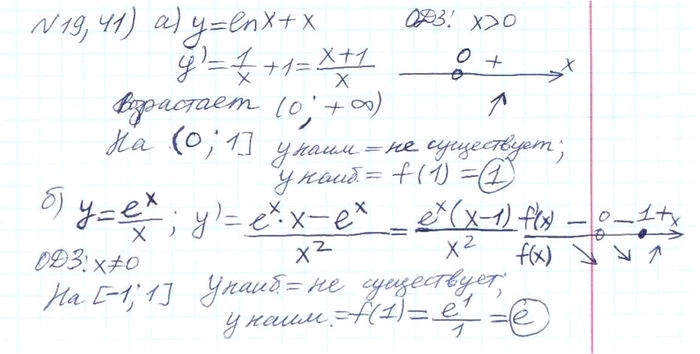 N19,41) а) y=lnx+x ОДЗ: x>0
y'=1/x+1=(x+1)/x 0 + x
Возрастает (0; +∞) ↗
На (0; 1] yнаим = не существует;
yнаиб. = f(1) = 1
б) y=e^x/x; y'=(e^x·x-e^x)/x^2=e^x(x-1)/x^2 f'(x) - 0 - 1 + x
ОДЗ: x≠0 f(x) ↘ ↘ ↗
На [-1; 1] Унаиб = не существует;
yнаим. = f(1) = e^1/1 = e